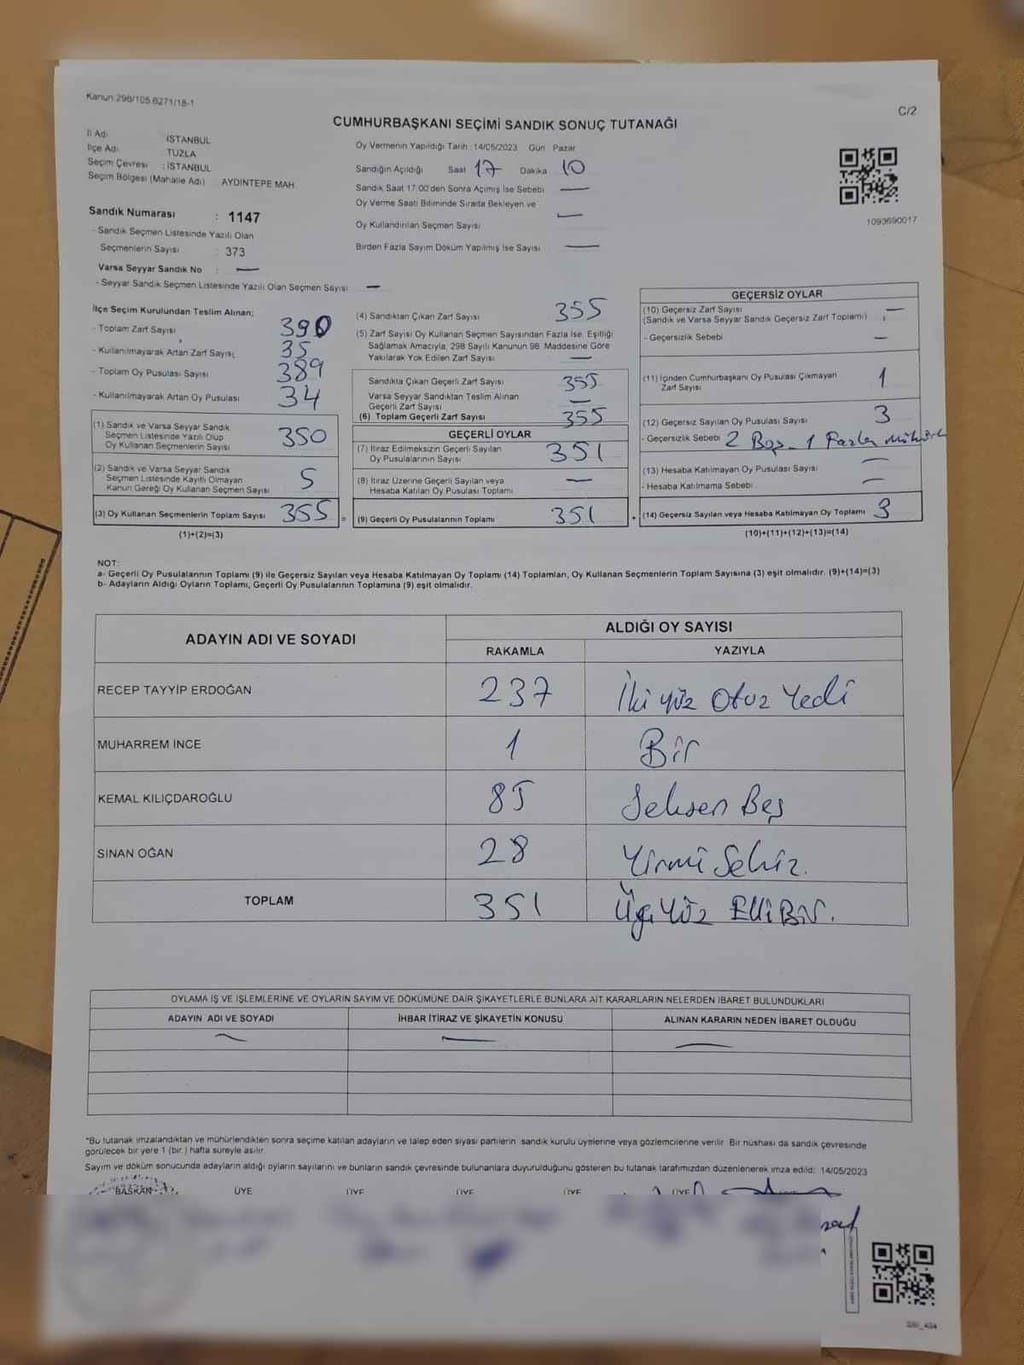 Kanun 298/105 6271/18-1
C/2
CUMHURBAŞKANI SEÇİMİ SANDIK SONUÇ TUTANAĞI
İl Adı : İSTANBUL
İlçe Adı : TUZLA
Seçim Çevresi : İSTANBUL
Seçim Bölgesi (Mahalle Adı) AYDINTEPE MAH.
Sandık Numarası : 1147
- Sandık Seçmen Listesinde Yazılı Olan
Seçmenlerin Sayısı : 373
Varsa Seyyar Sandık No : —
- Seyyar Sandık Seçmen Listesinde Yazılı Olan Seçmen Sayısı —
Oy Vermenin Yapıldığı Tarih : 14/05/2023 Gün Pazar
Sandığın Açıldığı Saat 17 Dakika 10
Sandık Saat 17:00'den Sonra Açılmış İse Sebebi —
Oy Verme Saati Bitiminde Sırada Bekleyen ve
Oy Kullandırılan Seçmen Sayısı —
Birden Fazla Sayım Döküm Yapılmış İse Sayısı —
1093690017
İlçe Seçim Kurulundan Teslim Alınan;
- Toplam Zarf Sayısı 390
- Kullanılmayarak Artan Zarf Sayısı; 35
- Toplam Oy Pusulası Sayısı 389
- Kullanılmayarak Artan Oy Pusulası 34
(1) Sandık ve Varsa Seyyar Sandık
Seçmen Listesinde Yazılı Olup
Oy Kullanan Seçmenlerin Sayısı 350
(2) Sandık ve Varsa Seyyar Sandık
Seçmen Listesinde Kayıtlı Olmayan
Kanun Gereği Oy Kullanan Seçmen Sayısı 5
(3) Oy Kullanan Seçmenlerin Toplam Sayısı 355 =
(1)+(2)=(3)
(4) Sandıktan Çıkan Zarf Sayısı 355
(5) Zarf Sayısı Oy Kullanan Seçmen Sayısından Fazla İse, Eşitliği
Sağlamak Amacıyla, 298 Sayılı Kanunun 98. Maddesine Göre
Yakılarak Yok Edilen Zarf Sayısı —
Sandıkta Çıkan Geçerli Zarf Sayısı 355
Varsa Seyyar Sandıktan Teslim Alınan
Geçerli Zarf Sayısı —
(6) Toplam Geçerli Zarf Sayısı 355
GEÇERLİ OYLAR
(7) İtiraz Edilmeksizin Geçerli Sayılan
Oy Pusulalarının Sayısı 351
(8) İtiraz Üzerine Geçerli Sayılan veya
Hesaba Katılan Oy Pusulası Toplamı —
(9) Geçerli Oy Pusulalarının Toplamı 351 +
GEÇERSİZ OYLAR
(10) Geçersiz Zarf Sayısı
(Sandık ve Varsa Seyyar Sandık Geçersiz Zarf Toplamı) —
- Geçersizlik Sebebi —
(11) İçinden Cumhurbaşkanı Oy Pusulası Çıkmayan
Zarf Sayısı 1
(12) Geçersiz Sayılan Oy Pusulası Sayısı 3
- Geçersizlik Sebebi 2 Boş 1 Fazla
(13) Hesaba Katılmayan Oy Pusulası Sayısı —
- Hesaba Katılmama Sebebi —
(14) Geçersiz Sayılan veya Hesaba Katılmayan Oy Toplamı 3
(10)+(11)+(12)+(13)=(14)
NOT:
a- Geçerli Oy Pusulalarının Toplamı (9) ile Geçersiz Sayılan veya Hesaba Katılmayan Oy Toplamı (14) Toplamları, Oy Kullanan Seçmenlerin Toplam Sayısına (3) eşit olmalıdır. (9)+(14)=(3)
b- Adayların Aldığı Oyların Toplamı, Geçerli Oy Pusulalarının Toplamına (9) eşit olmalıdır.
ADAYIN ADI VE SOYADI ALDIĞI OY SAYISI
RAKAMLA YAZIYLA
RECEP TAYYİP ERDOĞAN 237 İki yüz Otuz Yedi
MUHARREM İNCE 1 Bir
KEMAL KILIÇDAROĞLU 85 Seksen Beş
SİNAN OĞAN 28 Yirmi Sekiz.
TOPLAM 351 Üç Yüz Elli Bir.
OYLAMA İŞ VE İŞLEMLERİNE VE OYLARIN SAYIM VE DÖKÜMÜNE DAİR ŞİKAYETLERLE BUNLARA AİT KARARLARIN NELERDEN İBARET BULUNDUKLARI
ADAYIN ADI VE SOYADI İHBAR İTİRAZ VE ŞİKAYETİN KONUSU ALINAN KARARIN NEDEN İBARET OLDUĞU
— — —
*Bu tutanak imzalandıktan ve mühürlendikten sonra seçime katılan adayların ve talep eden siyasi partilerin sandık kurulu üyelerine veya gözlemcilerine verilir. Bir nüshası da sandık çevresinde
görülecek bir yere 1 (bir ) hafta süreyle asılır.
Sayım ve döküm sonucunda adayların aldığı oyların sayılarını ve bunların sandık çevresinde bulunanlara duyurulduğunu gösteren bu tutanak tarafımızdan düzenlenerek imza edildi: 14/05/2023
BAŞKAN ÜYE ÜYE ÜYE ÜYE ÜYE